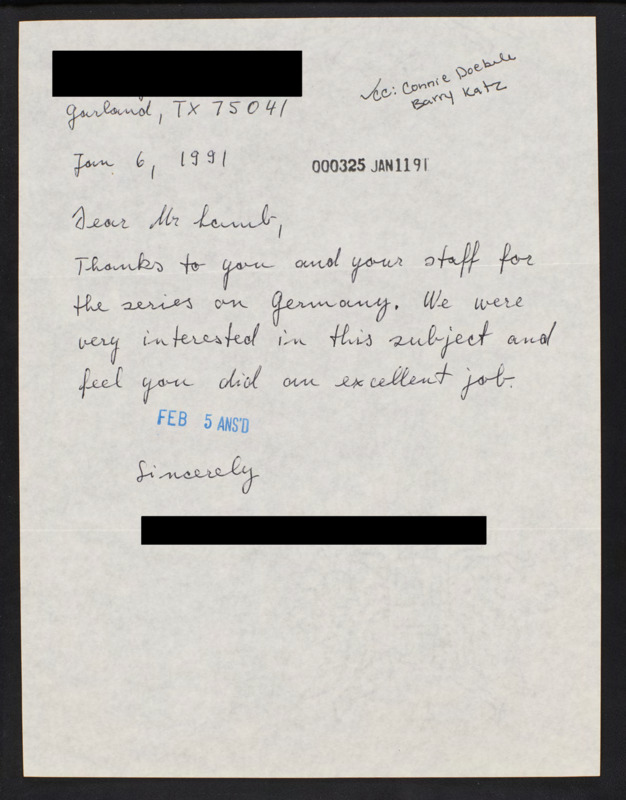 Garland, TX 75041
✓cc: Connie Doebele
Barry Katz
Jan 6, 1991
000325 JAN1191
Dear Mr Lamb,
Thanks to you and your staff for
the series on Germany. We were
very interested in this subject and
feel you did an excellent job.
FEB 5 ANS'D
Sincerely